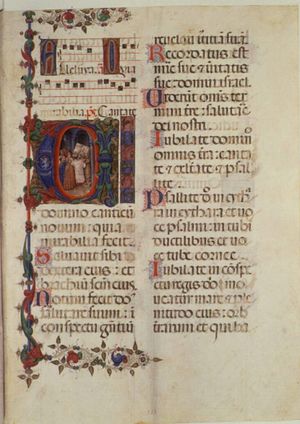 Alleluya. A Quia
mirabilia. ps Cantate
domino canticū
novum: quia
mirabilia fecit.
Saluavit sibi
dextera eius: et
brachiū scm̄ eius
Notum fecit do
salutare suum: ī
conspectu gentiū
revelavit iustitiā suā.
Recordatus est
mie sue & veritatis
sue domui israel
Viderūt om̄s tm̄i
terre: salutare
dei nostri.
Iubilate domino
omnis terra: canta
te & exultate & psal
lite.
Psallite dn̄o in cy
thara in cythara et vo
ce psalmi: in tubi
ductilibus et vo
ce tube cornee.
Iubilate in cōspe
ctu regis dn̄i: mo
veatur mare et ple
nitudo eius: or
bis terrarum et qui ha